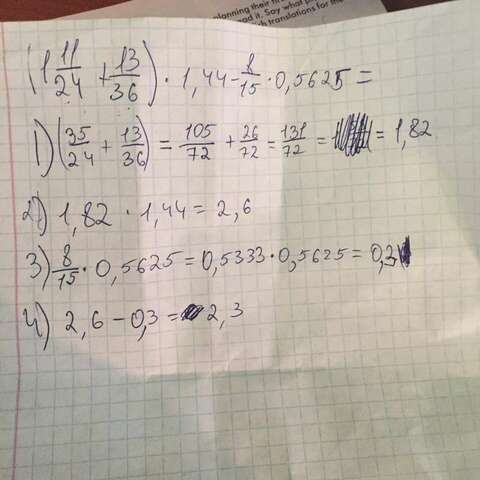 planning their
ead it. Say what
translations for the
(1 11/24 + 13/36) · 1,44 - 8/15 · 0,5625 =
1) (35/24 + 13/36) = 105/72 + 26/72 = 131/72 = = 1,82
2) 1,82 · 1,44 = 2,6
3) 8/15 · 0,5625 = 0,5333 · 0,5625 = 0,3
4) 2,6 - 0,3 = 2,3